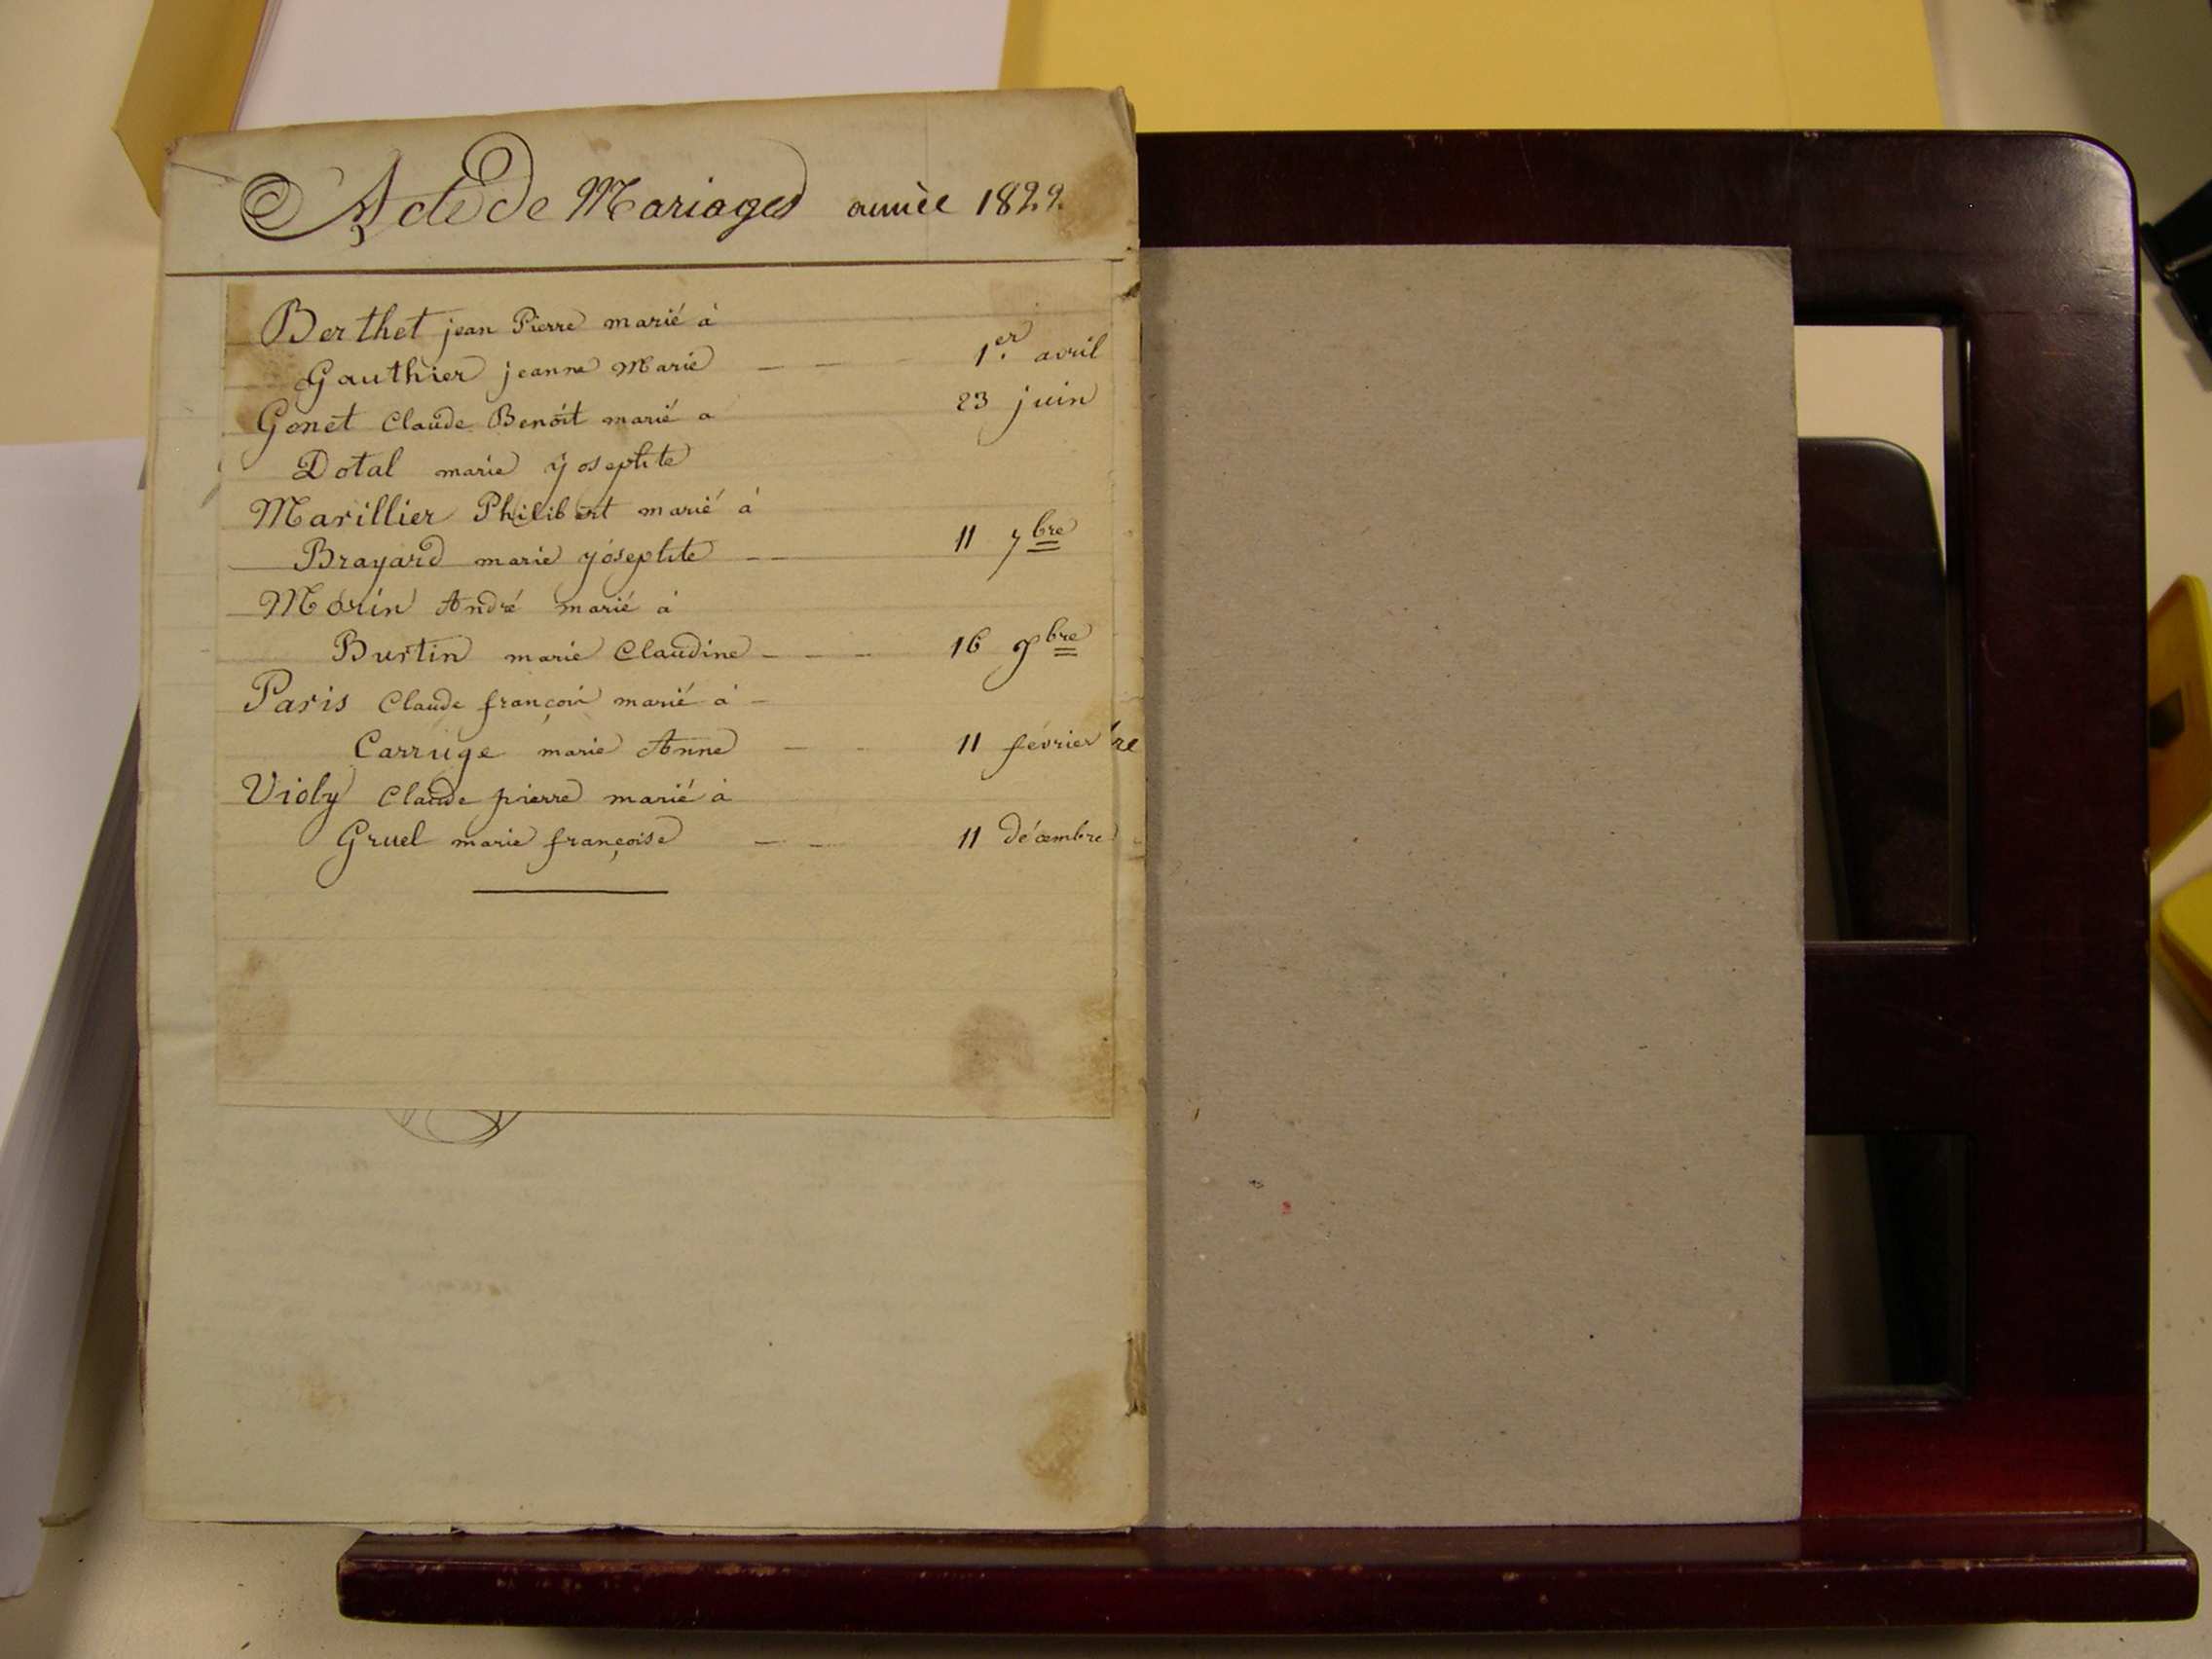 Acte de Mariages année 1822.
Berthet jean Pierre marié à
Gauthier jeanne Marie — — 1er. avril
Gonet Claude Benoît marié a 23 juin
Dotal marie yosephte
Marillier Philibert marié à
Brayard marie yosephte — — 11 7bre
Morin André marié à
Burtin marie Claudine — — — 16 9bre
Paris Claude françois marié à —
Carruge marie Anne — — 11 février
Violy Claude pierre marié à
Gruel marie françoise — — 11 décembre